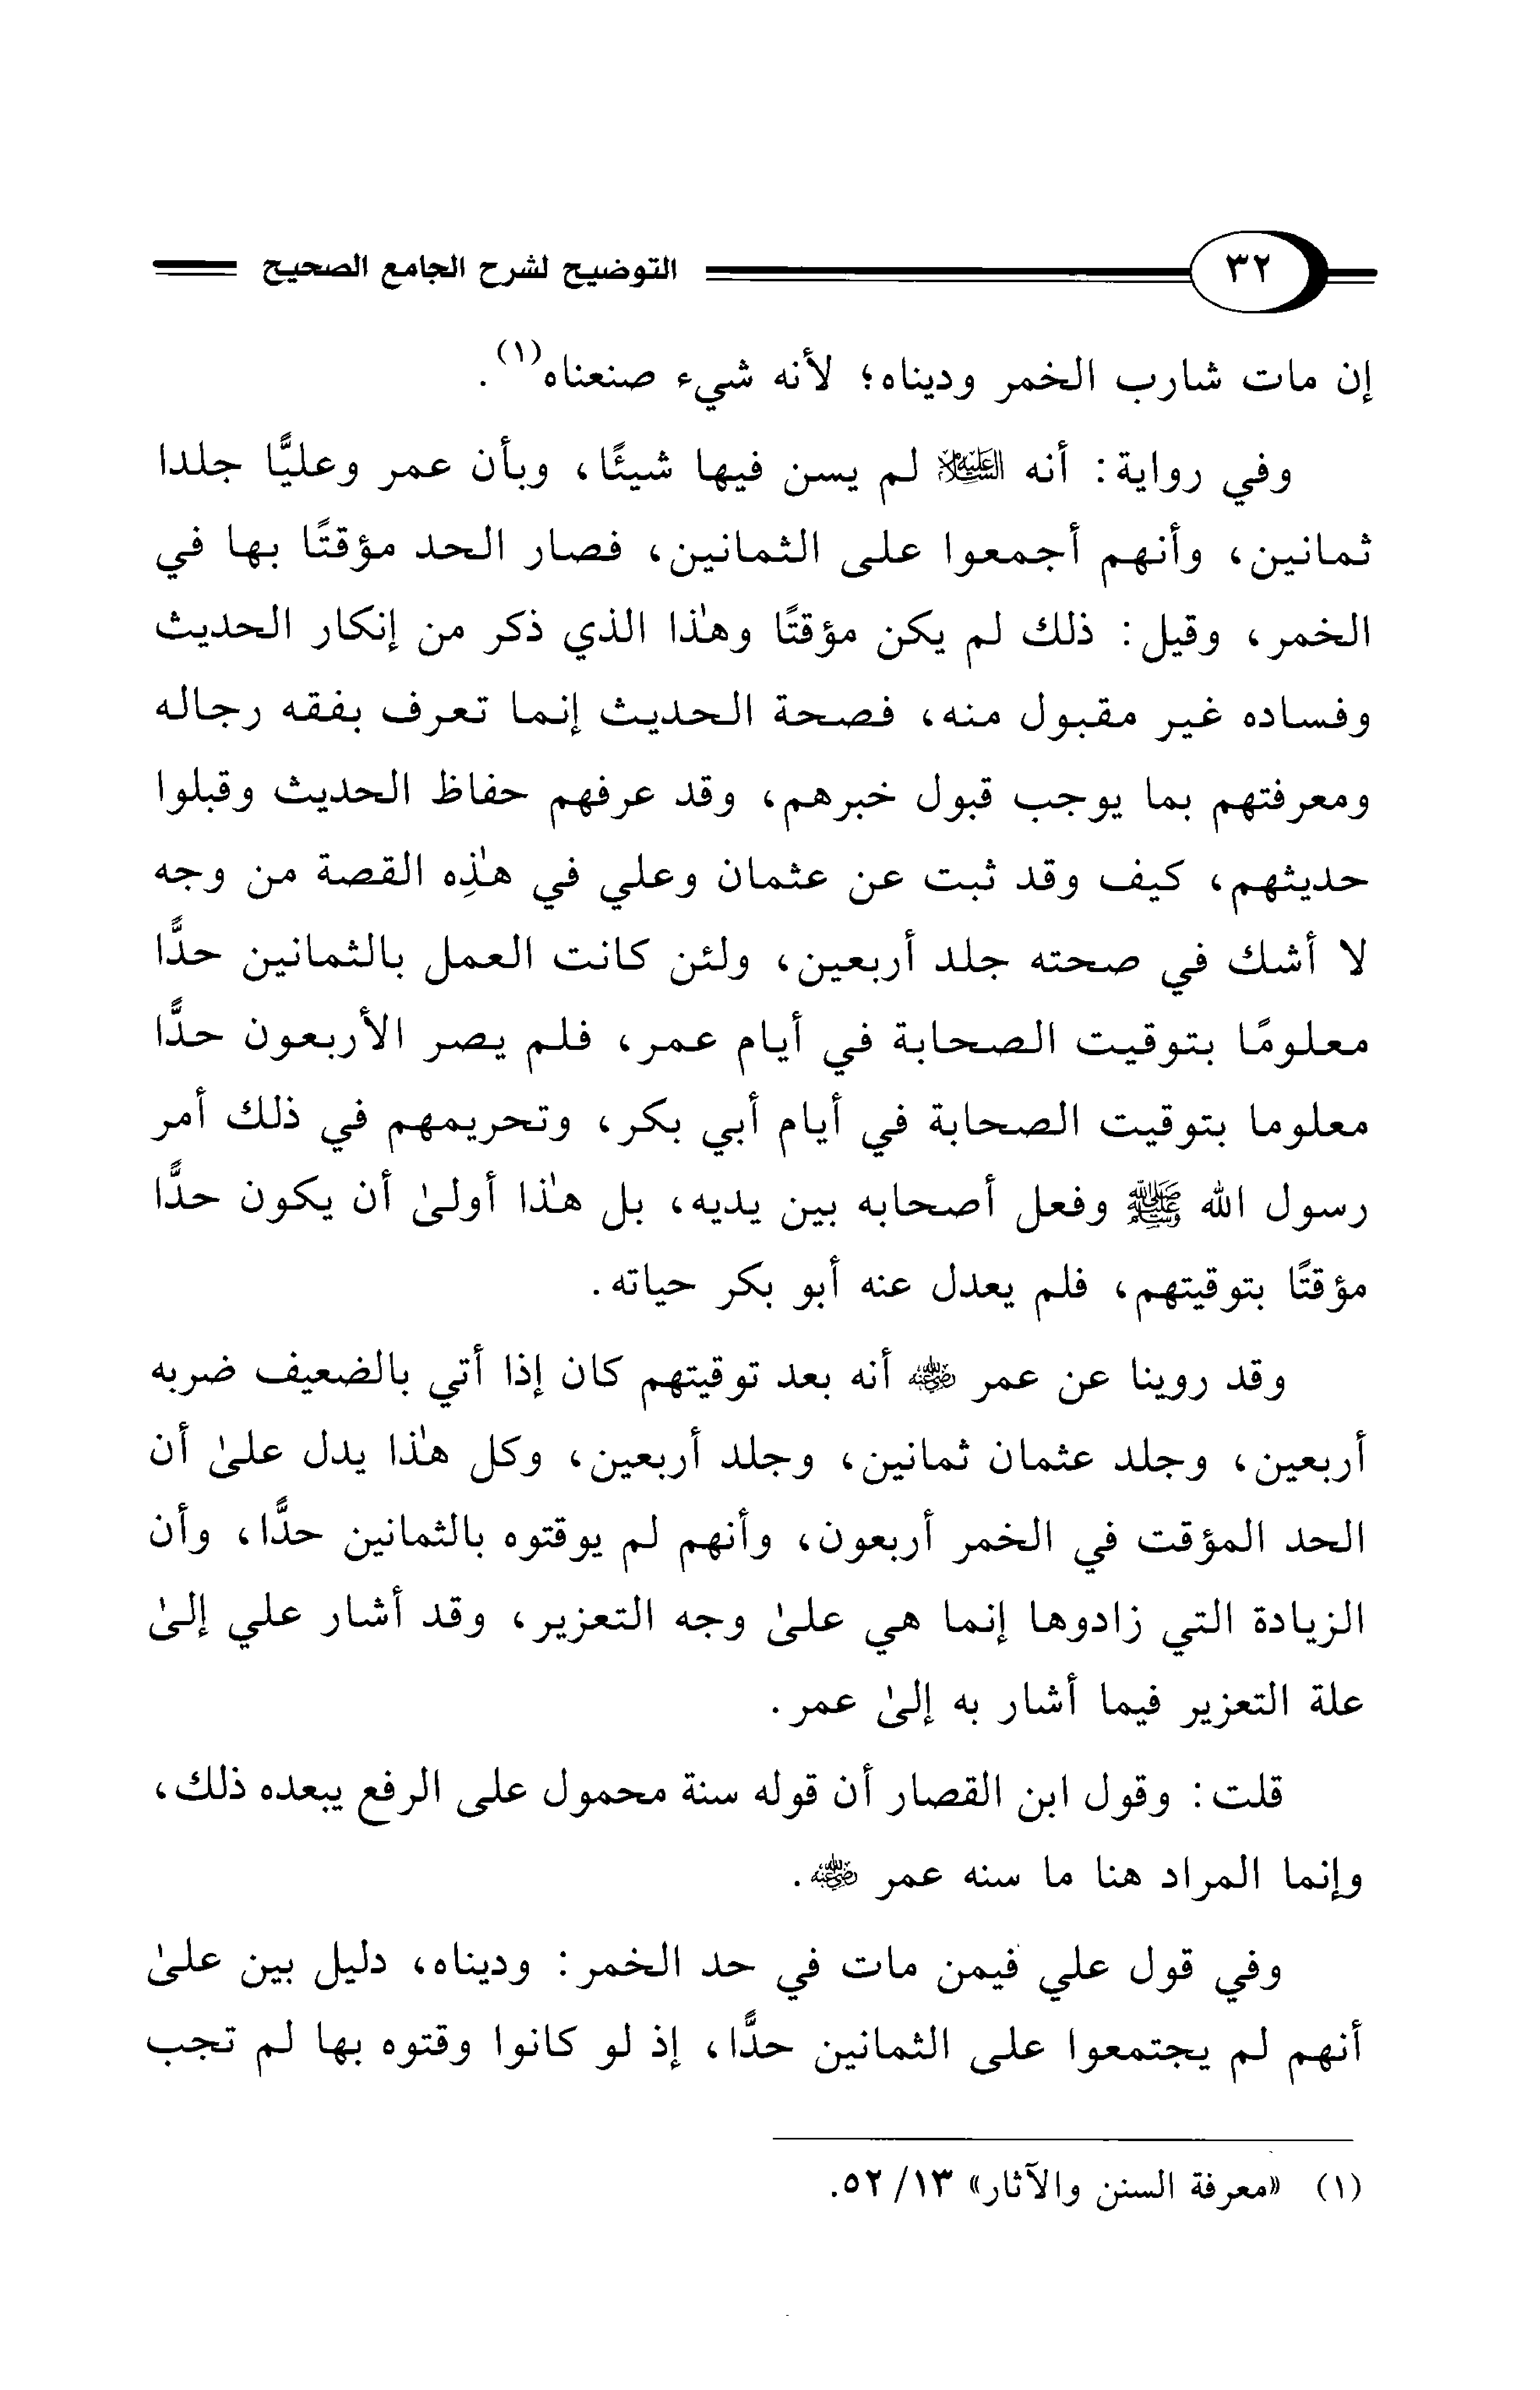 ٣٢ التوضيح لشرح الجامع الصحيح
إن مات شارب الخمر وديناه؛ لأنه شيء صنعناه(١).
وفي رواية: أنه عليه السلام لم يسن فيها شيئًا، وبأن عمر وعليًّا جلدا
ثمانين، وأنهم أجمعوا على الثمانين، فصار الحد مؤقتًا بها في
الخمر، وقيل: ذلك لم يكن مؤقتًا وهذا الذي ذكر من إنكار الحديث
وفساده غير مقبول منه، فصحة الحديث إنما تعرف بفقه رجاله
ومعرفتهم بما يوجب قبول خبرهم، وقد عرفهم حفاظ الحديث وقبلوا
حديثهم، كيف وقد ثبت عن عثمان وعلي في هٰذِه القصة من وجه
لا أشك في صحته جلد أربعين، ولئن كانت العمل بالثمانين حدًّا
معلومًا بتوقيت الصحابة في أيام عمر، فلم يصر الأربعون حدًّا
معلوما بتوقيت الصحابة في أيام أبي بكر، وتحريمهم في ذلك أمر
رسول الله ﷺ وفعل أصحابه بين يديه، بل هٰذا أولىٰ أن يكون حدًّا
مؤقتًا بتوقيتهم، فلم يعدل عنه أبو بكر حياته.
وقد روينا عن عمر رضي الله عنه أنه بعد توقيتهم كان إذا أتي بالضعيف ضربه
أربعين، وجلد عثمان ثمانين، وجلد أربعين، وكل هٰذا يدل علىٰ أن
الحد المؤقت في الخمر أربعون، وأنهم لم يوقتوه بالثمانين حدًّا، وأن
الزيادة التي زادوها إنما هي علىٰ وجه التعزير، وقد أشار علي إلىٰ
علة التعزير فيما أشار به إلىٰ عمر.
قلت: وقول ابن القصار أن قوله سنة محمول على الرفع يبعده ذلك،
وإنما المراد هنا ما سنه عمر رضي الله عنه.
وفي قول علي فيمن مات في حد الخمر: وديناه، دليل بين علىٰ
أنهم لم يجتمعوا على الثمانين حدًّا، إذ لو كانوا وقتوه بها لم تجب
(١) «معرفة السنن والآثار» ١٣/ ٥٢.